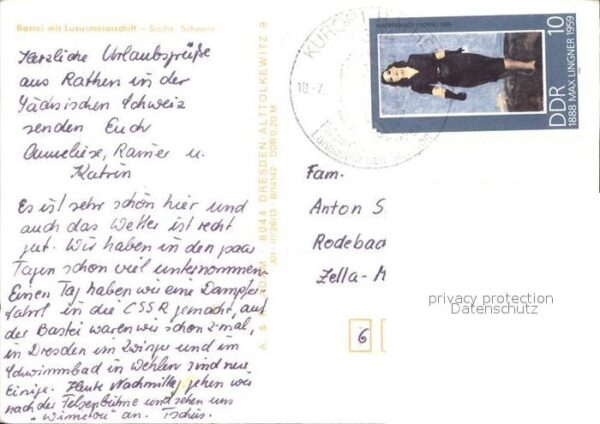 Bastei mit Luxusmotorschiff – Sächs. Schweiz
Herzliche Urlaubsgrüße
aus Rathen in der
Sächsischen Schweiz
senden Euch
Anneliese, Rainer u.
Katrin
Es ist sehr schön hier und
auch das Wetter ist recht
gut. Wir haben in den paar
Tagen schon viel unternommen.
Einen Tag haben wir eine Dampfer-
fahrt in die CSSR gemacht, auf
der Bastei waren wir schon 2-mal,
in Dresden im Zwinger und im
Schwimmbad in Wehlen sind nur
Einige. Heute Nachmittag gehen wir
nach der Felsenbühne und sehen uns
"Winnetou" an. Tschüs.
A & R ADAM · 8044 DRESDEN-ALTTOLKEWITZ 9
III/26/13 · DDR 0,20 M
KURORT
10.
DDR 10
1888 MAX LINGNER 1959
Fam.
Anton S
Rodebac
Zella-M
6
privacy protection
Datenschutz